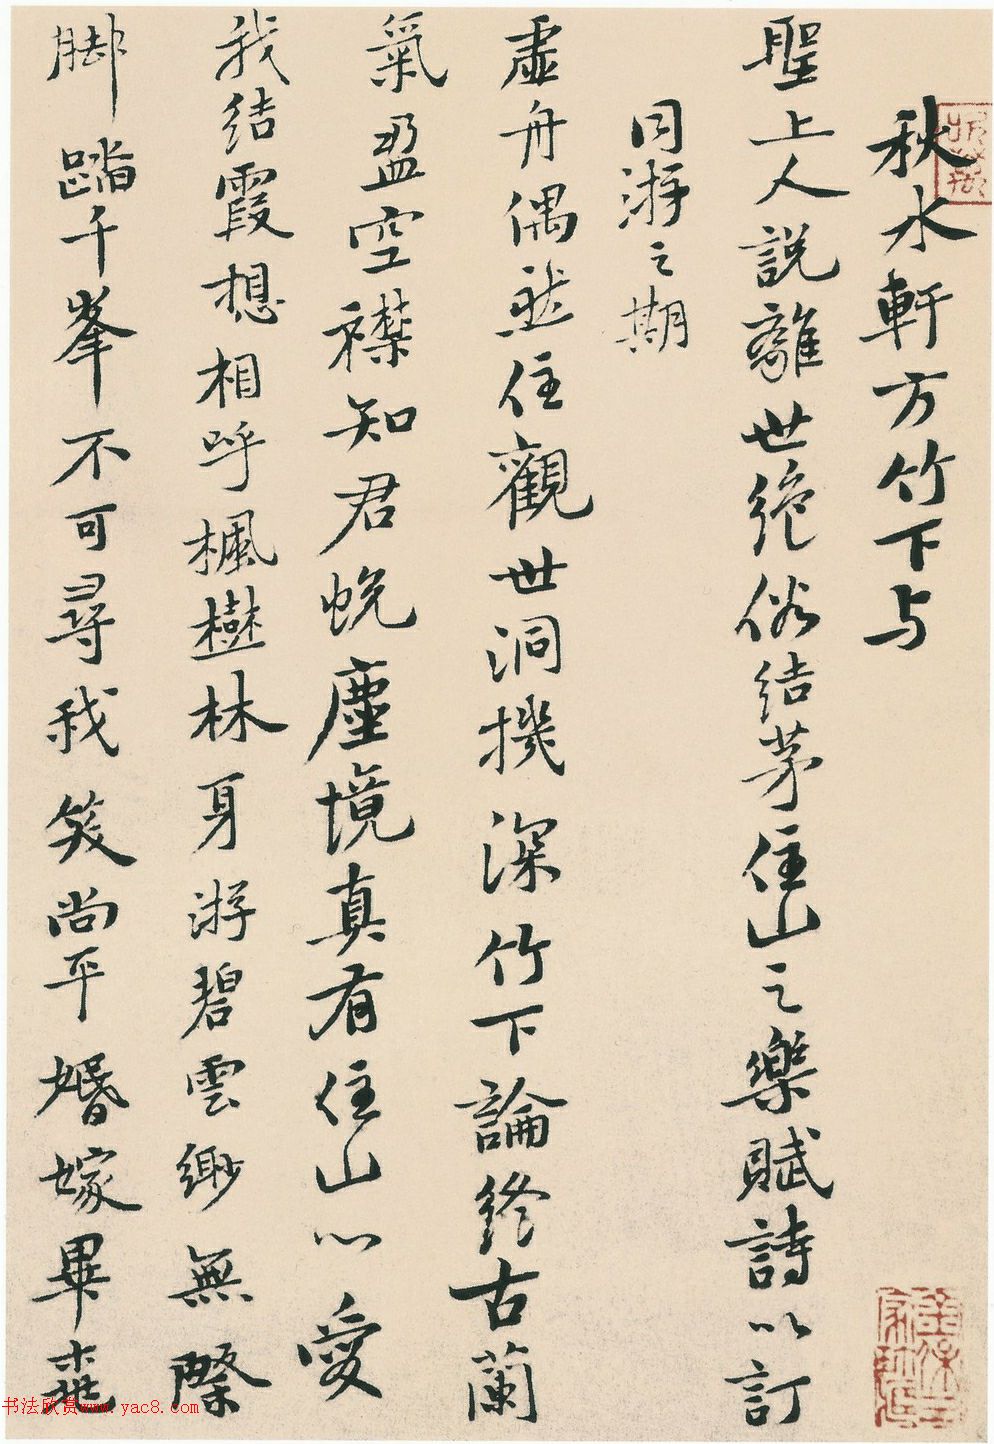 秋水軒方竹下与
聖上人説離世絶俗結茅住山之樂賦詩以訂
同游之期
虛舟偶然住觀世洞機深竹下論終古蘭
氣盈空襟知君蛻塵境真有住山心愛
我結霞想相呼楓樹林身游碧雲緲無際
脚踏千峯不可尋我笑尚平婚嫁畢
书法欣赏www.yac8.com